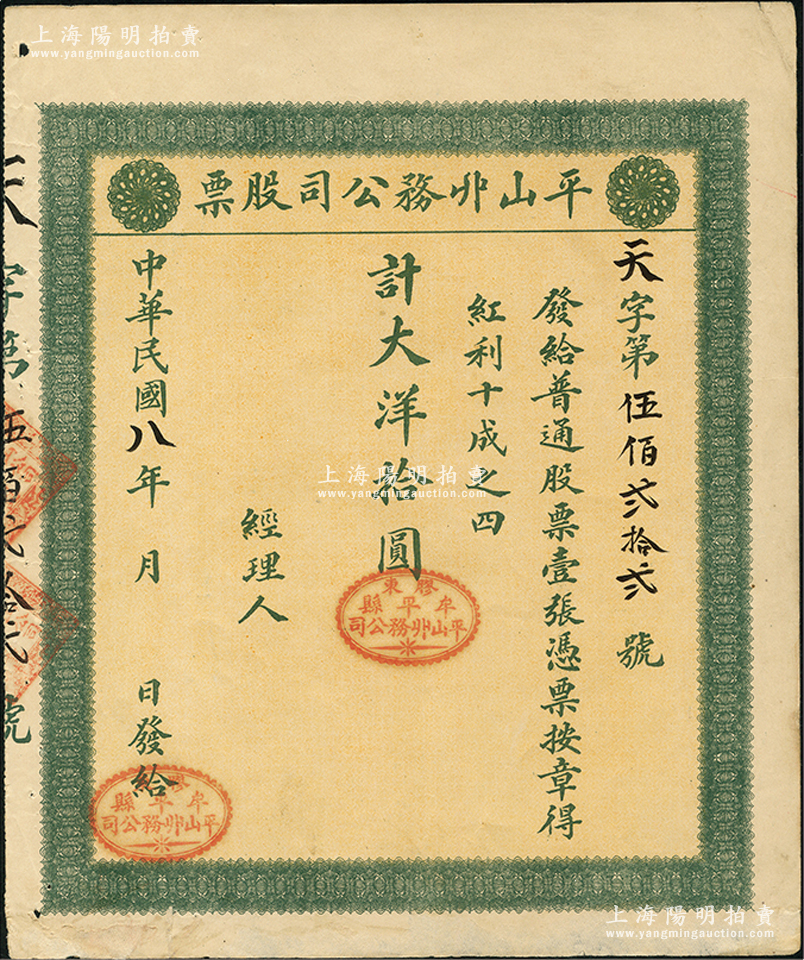 上海陽明拍賣
www.yangmingauction.com
平山丱務公司股票
天字第伍佰弍拾弍號
發給普通股票壹張憑票按章得
紅利十成之四
計大洋拾圓
經理人
中華民國八年 月 日發給
膠東
牟平縣
平山丱務公司
牟平縣
平山丱務公司
天字第伍佰弍拾弍號
上海陽明拍賣
www.yangmingauction.com
上海陽明拍賣
www.yangmingauction.com